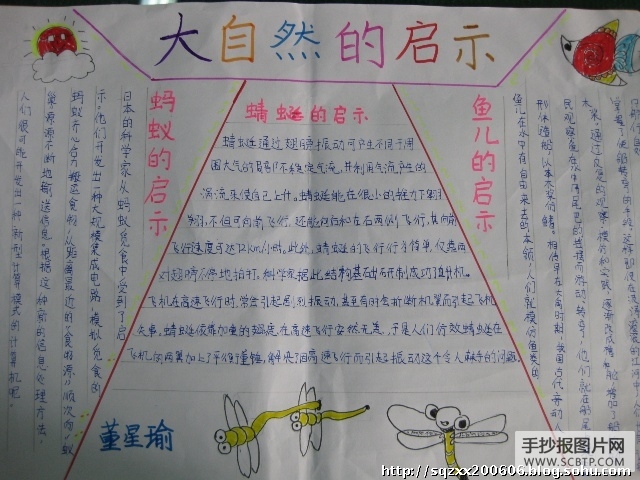 大自然的启示
蚂蚁的启示
日本的科学家从蚂蚁觅食中受到了启
示。他们开发出一种大规模集成电路，模拟觅食的
蚂蚁齐心合力搬运食物，从距离最近的"食物源"顺次向"蚁
巢"源源不断地输送信息。根据这种高的信息处理方法，
人们很可能开发出一种新型计算模式的计算机呢。
蜻蜓的启示
蜻蜓通过翅膀振动可产生不同于周
围大气的局部不稳定气流，并利用气流产生的
涡流来使自己上升。蜻蜓能在很小的推力下翱
翔，不但可向前飞行，还能向后和左右两侧飞行，其向前
飞行速度可达72km/小时。此外，蜻蜓的飞行行为简单，仅靠两
对翅膀不停地拍打。科学家据此结构基础上研制成功了直升机。
飞机在高速飞行时，常会引起剧烈振动，甚至有时会折断机翼而引起飞机
失事。蜻蜓依靠加重的翅痣在高速飞行安然无恙，于是人们仿效蜻蜓在
飞机的两翼加上了平衡重锤，解决了因高速飞行而引起振动这个令人棘手的问题
鱼儿的启示
鱼儿在水中有自由来去的本领，人们就模仿鱼类的
形体造船，以木桨仿鳍。相传早在大禹时期，我国古代劳动人
民观察鱼在水中用尾巴的摇摆而游动、转弯，他们就在船尾
木桨。通过反复的观察、模仿和实践，逐渐改成橹和舵，增加了船
董星瑜
手抄报图片网
WWW.SCBTP.COM
http://sqzxx200606.blog.sohu.com/